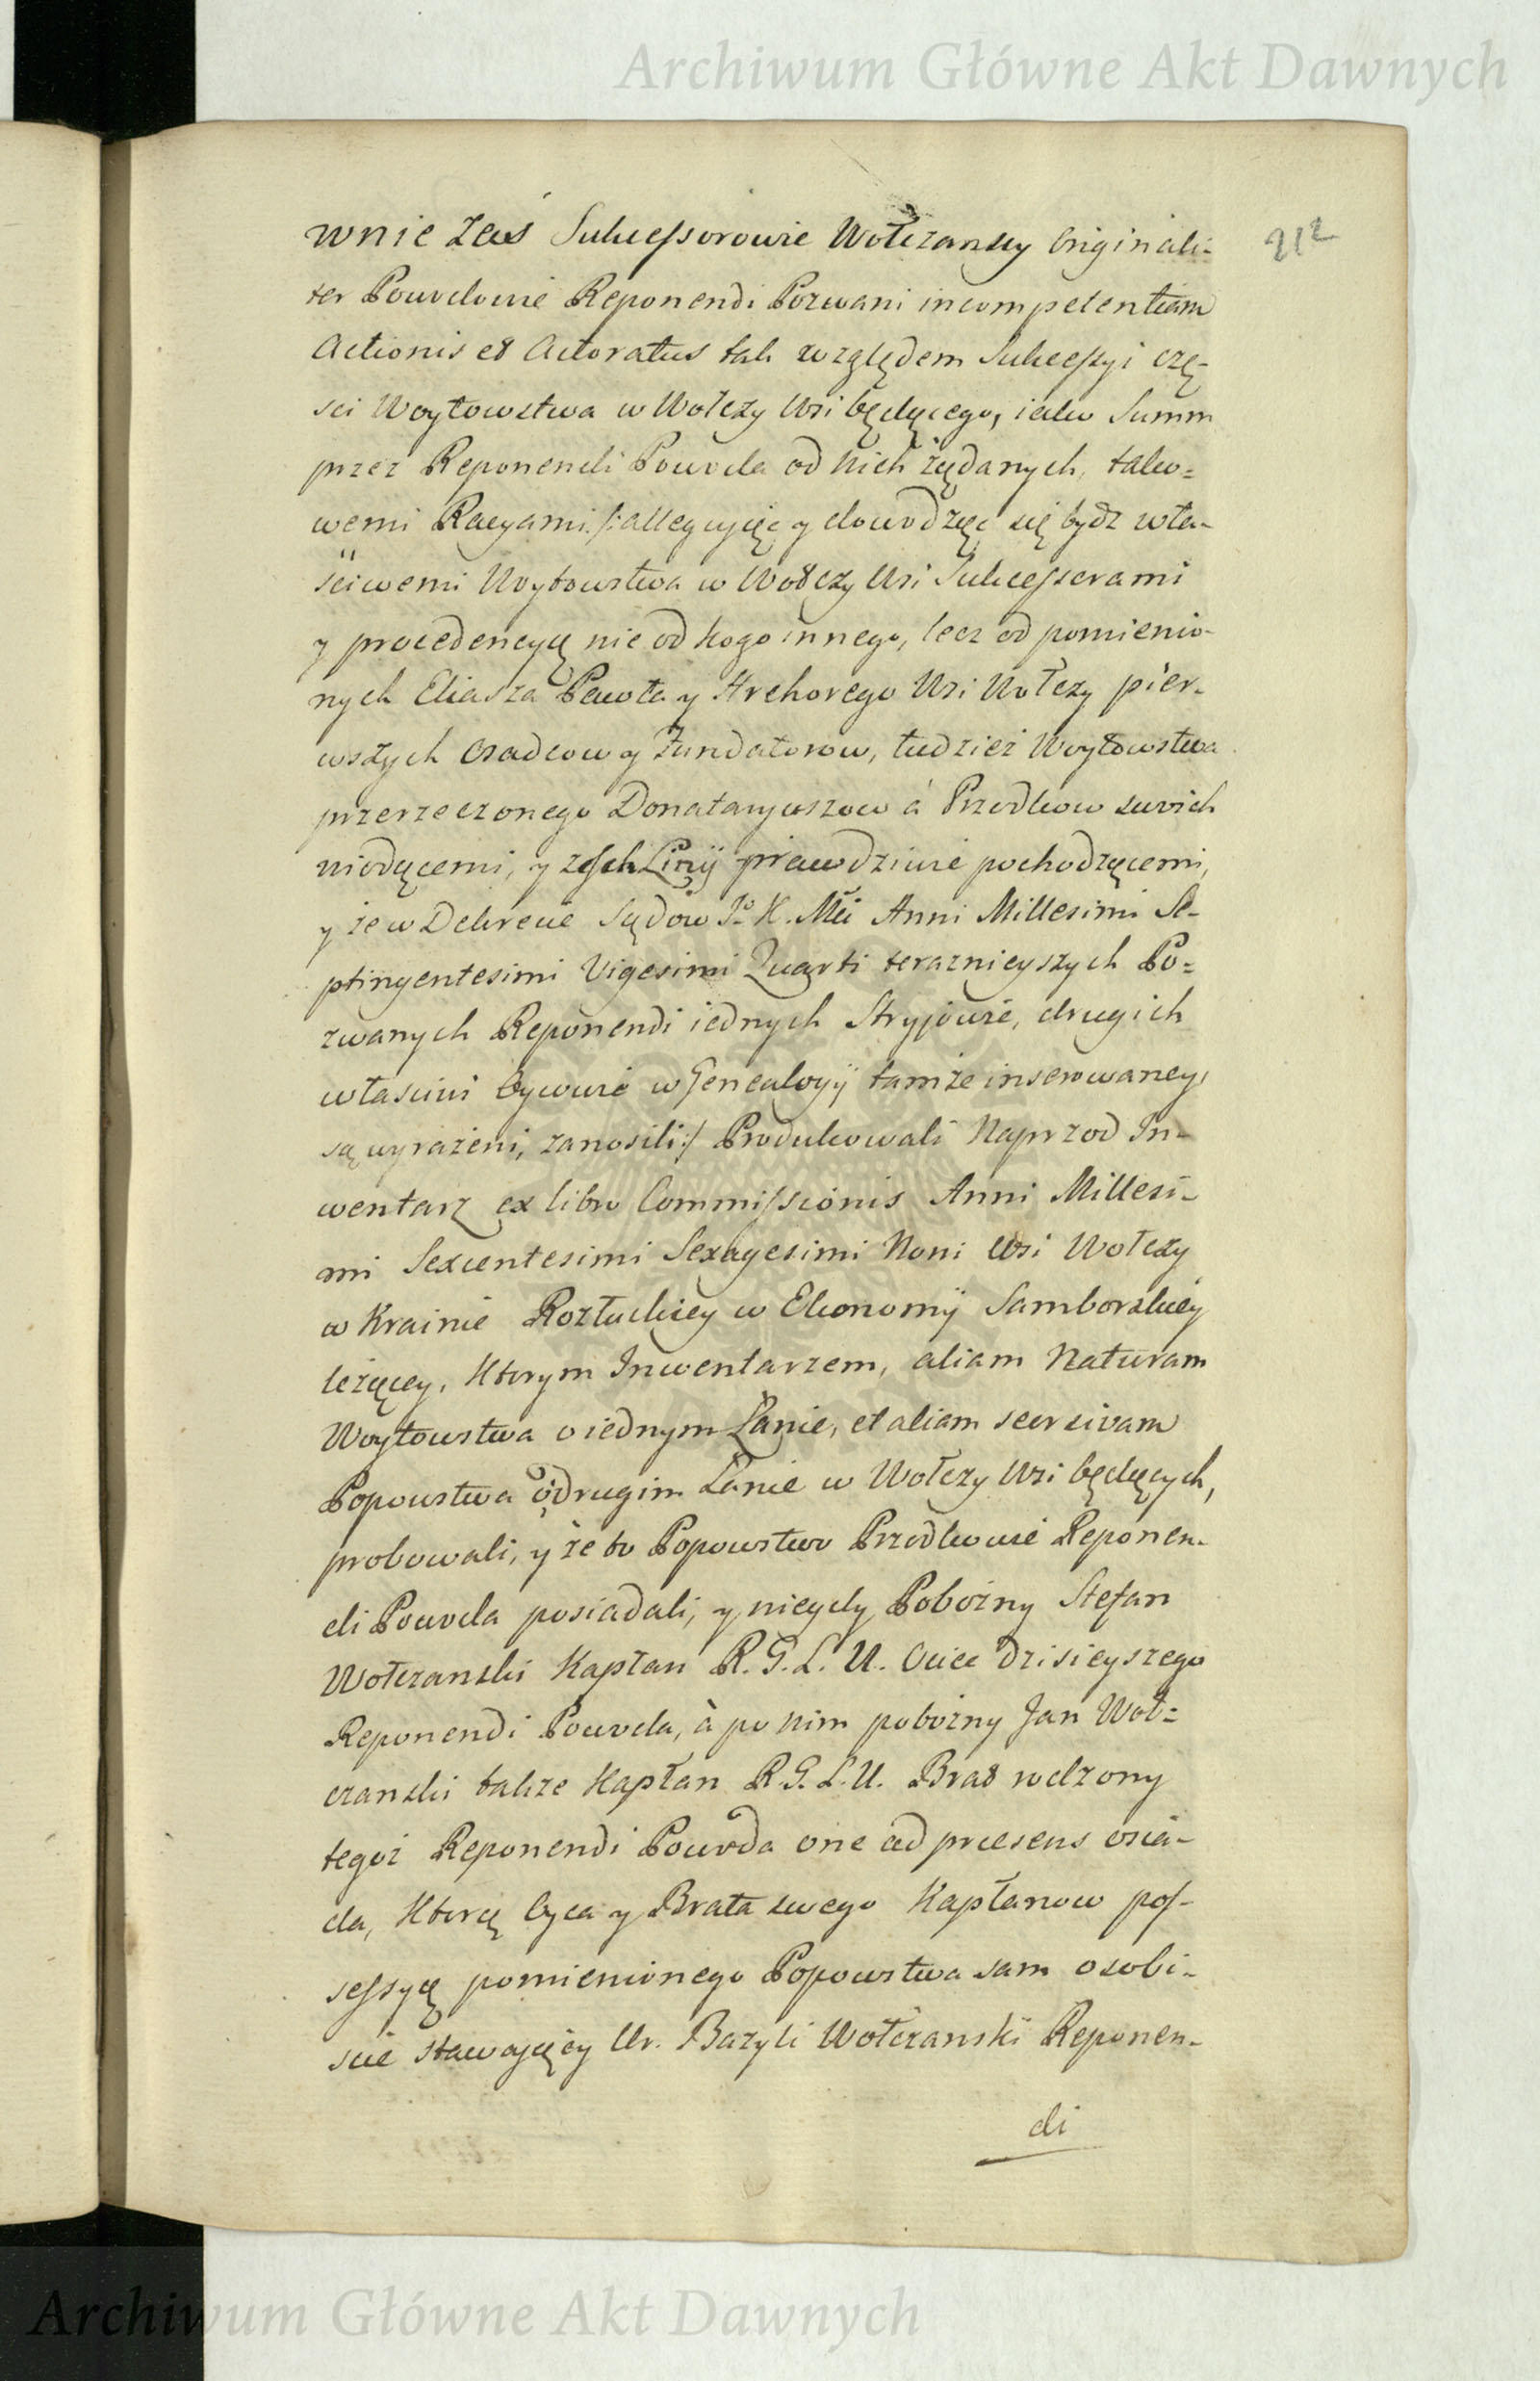 Archiwum Główne Akt Dawnych
212
wnie zaś Sukcessorowie Wołczanscy Originali-
ter Powodowie Reponendi Pozwani incompetentiam
Actionis et Actoratus tak względem Sukcessyi czę-
sci Woytowstwa w Wołczy Wsi będącego, iako Summ
przez Reponendi Powoda od nich żądanych, tako-
wemi Racyami /: allegując y dowodząc się bydz wła-
ściwemi Woytowstwa w Wołczy Wsi Sukcessorami
y procedencyą nie od kogo innego, lecz od pomienio-
nych Eliasza Pawła y Hrehorego Wsi Wołczy pier-
wszych Osadcow y Fundatorow, tudzież Woytowstwa
przerzeczonego Donataryuszow á Przodkow swoich
wiodącemi, y z Ich Linij prawdziwie pochodzącemi,
y że w Dekrecie Sądow J. K. Mci Anni Millesimi Se-
ptingentesimi Vigesimi Quarti teraznieyszych Po-
zwanych Reponendi iednych Stryjowie, drugich
własciwi Oycowie w Genealogij tamże inserowaney
są wyrażeni, zanosili :/ Produkowali Naprzod In-
wentarz ex libro Commissionis Anni Millesi-
mi Sexcentesimi Sexagesimi Noni Wsi Wołczy
w Krainie Rozłuckiey w Ekonomij Samborskiey
leżącey, Ktorym Inwentarzem, aliam Naturam
Woytowstwa o iednym Łanie, et aliam seorsivam
Popowstwa o drugim Łanie w Wołczy Wsi będących,
probowali, y że to Popowstwo Przodkowie Reponen-
di Powoda posiadali, y niegdy Pobożny Stefan
Wołczanski Kapłan R. G. L. U. Ociec dzisieyszego
Reponendi Powoda, à po nim pobożny Jan Woł-
czanski także Kapłan R. G. L. U. Brat rodzony
tegoż Reponendi Powoda one ad praesens osia-
da, Ktorą Oyca y Brata swego Kapłanow pos-
sessyą pomienionego Popowstwa sam osobi-
scie stawaiący Ur. Bazyli Wołczanski Reponen-
di
Archiwum Główne Akt Dawnych